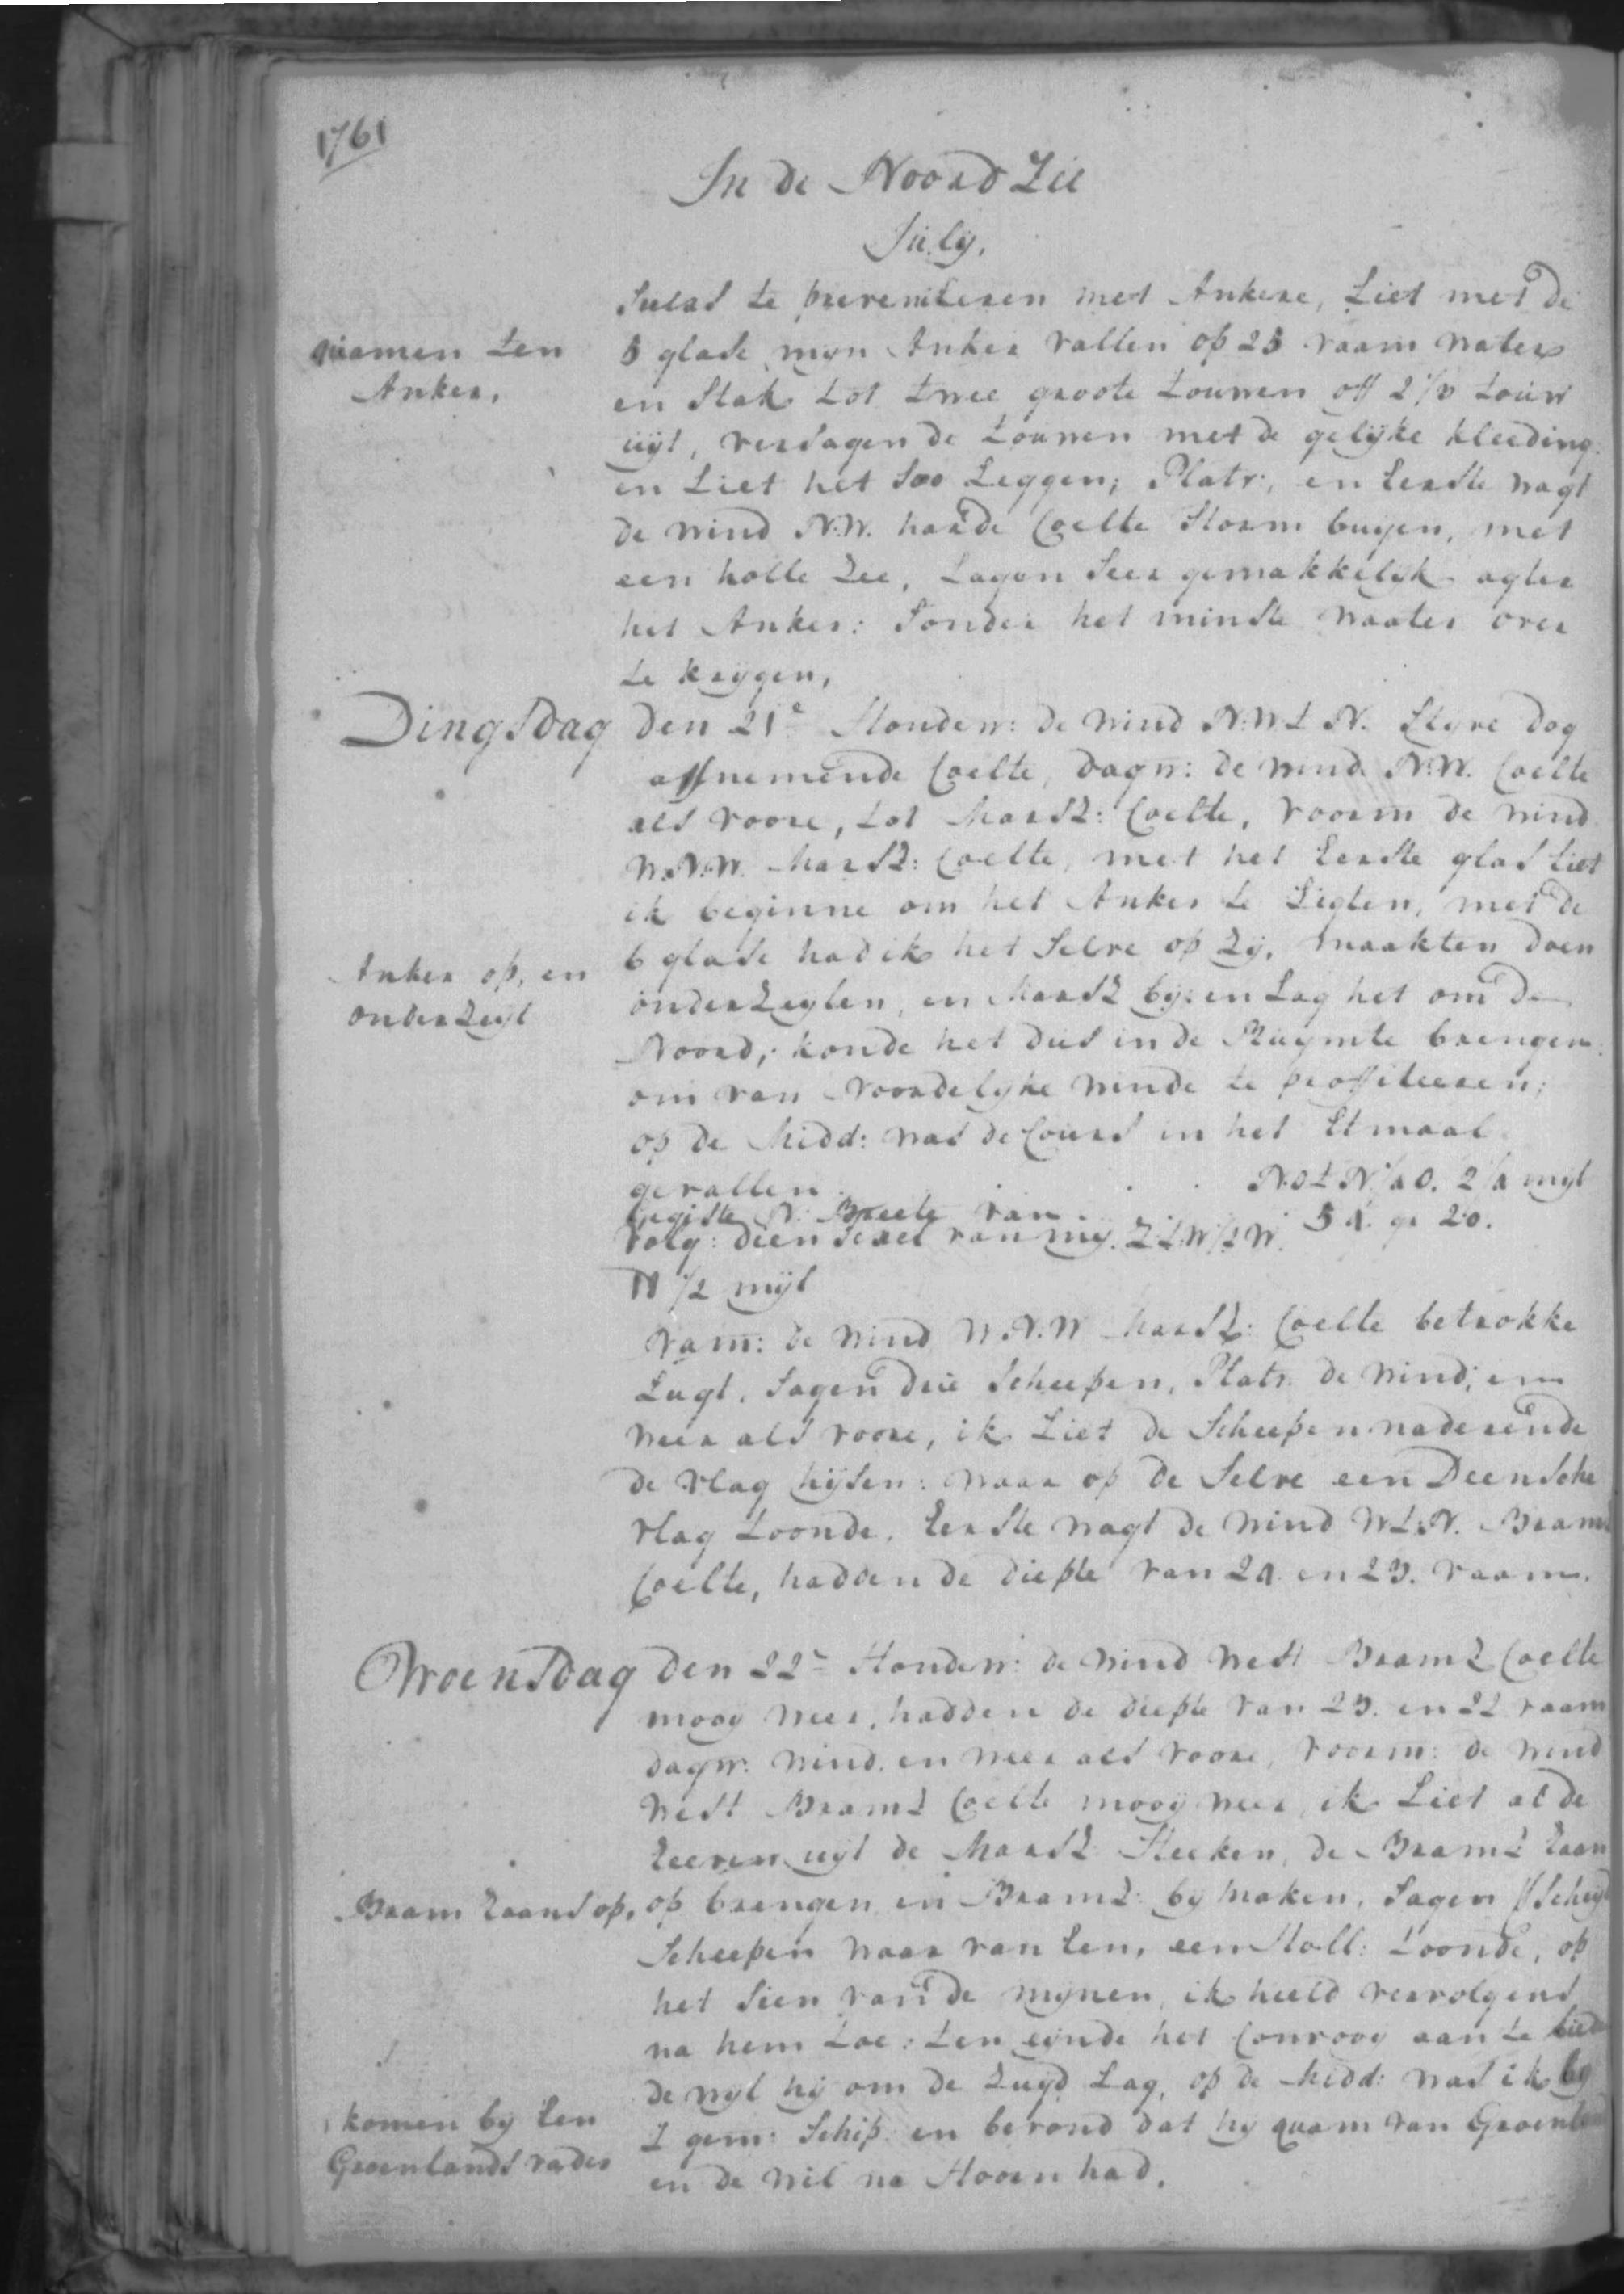 1761
In de Noord Zee
July,
sulx te prevenieren met Ankere, Liet met de
quamen ten
Anker,
5 glase myn Anker vallen op 25 vaam water
en stak tot twee groote touwen off 2 1/2 touw
uijt, versagen de touwen met de gelijke kleeding
en Liet het soo Leggen; Platv:, en Eerste wagt
de wind N.W. harde Coelte storm buijen, met
een holle Zee, Lagen seer gemakkelijk agter
het Anker: sonder het minste waater over
te krygen,
Dingsdag den 21e Hondew: de wind N:W t N. styve dog
affnemende Coelte, dagw: de wind N:W. Coelte
als voore, tot Marsz: Coelte, voorm de wind
W.N.W. Marsz: Coelte, met het Eerste glas liet
ik beginne om het Anker te Ligten, met de
Anker op, en
onderzeyl
6 glase had ik het selve op zy, maakten doen
onderzeylen, en Marsz by: en Lag het om de
Noord, konde het dus in de Ruymte brengen
om van voordelyke winde te proffiteeren;
op de Midd: was de Cours in het Etmaal
gevallen . . . N.O t N 1/2 O. 2 1/2 myl
Legiste N: Breete van . . 54. gr 20.
volg: dien Texel van my. Z t W 1/2 W.
11 1/2 mijl
Nam: de wind W.N.W Marsz: Coelte betrokke
Lugt, sagen drie scheepen, Platv. de wind, en
weer als voore, ik Liet de Scheepen naderende
de vlag hijsen: waar op de selve een Deensche
vlag toonde. Eerste wagt de wind W t N. Bramz
Coelte, hadden de diepte van 24 en 23. vaam.
Woensdag den 22e Hondew: de wind West Bramz Coelte
mooy weer, hadden de diepte van 23. en 22 vaam
dagw: wind, en weer als voore, voorm: de wind
West Bramz Coelte mooy weer, ik Liet al de
reeven uyt de Marsz steeken, de Bramz raan
Bram raans op,
op brengen en Bramz: by maken, sagen
Scheepen waar van een, een Holl: toonde, op
het sien van de mynen, ik hield vervolgens
na hem toe: ten eynde het Convooy aan te bied
de wyl hy om de Zuyd Lag, op de Midd: was ik by
komen by een
Groenlands vader
't gem: Schip en bevond dat hy quam van Groenland
en de wil na Hoorn had.